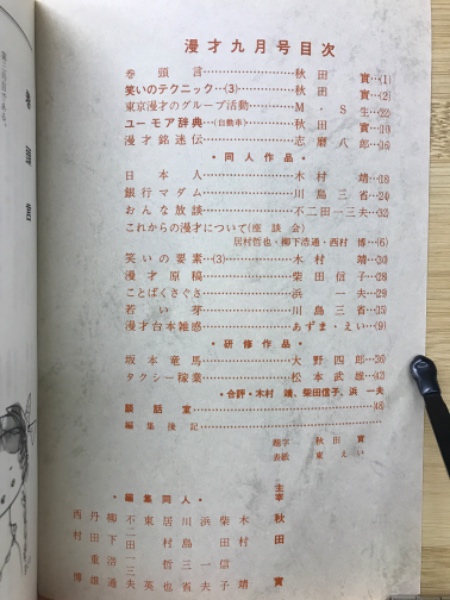 漫才九月号目次
巻頭言…秋田實…(1)
笑いのテクニック…(3)…秋田實…(2)
東京漫才のグループ活動…M・S生…(22)
ユーモア辞典…(自動車)…秋田實…(10)
漫才銘迷伝…志磨八郎…(16)
・同人作品・
日本人…木村靖…(18)
銀行マダム…川島三省…(24)
おんな放談…不二田一三夫…(32)
これからの漫才について(座談会)
居村哲也・柳下浩通・西村博…(6)
笑いの要素…(3)…木村靖…(30)
漫才原稿…柴田信子…(28)
ことばくさぐさ…浜一夫…(29)
若い芽…川島三省…(35)
漫才台本雑感…あずま・えい…(9)
・研修作品・
坂本竜馬…大野四郎…(36)
タクシー稼業…松本武雄…(42)
・合評・木村靖、柴田信子、浜一夫
談話室…(48)
編集後記…
題字 秋田實
表紙 東えい
主宰 秋田實
・編集同人・
木村靖
柴田信子
浜一夫
川島三省
居村哲也
東英
不二田一三夫
柳下浩通
丹田重雄
西村博
巻頭言